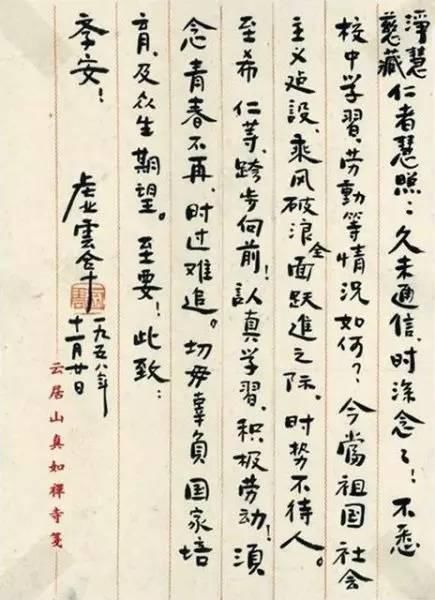 淨慧
慈藏 仁者慧照：久未通信，时深念々！不悉
校中学習、劳動等情況如何？今當祖国社会
主义建設，乘风破浪，全面跃進之际，时势不待人。
至希 仁等，跨步向前！认真学習，积极劳动！须
念青春不再，时过难追。切毋辜負国家培
育，及众生期望。至要！此致：
季安！
虛雲合十
一九五八年
十一月廿日
云居山真如禪寺箋